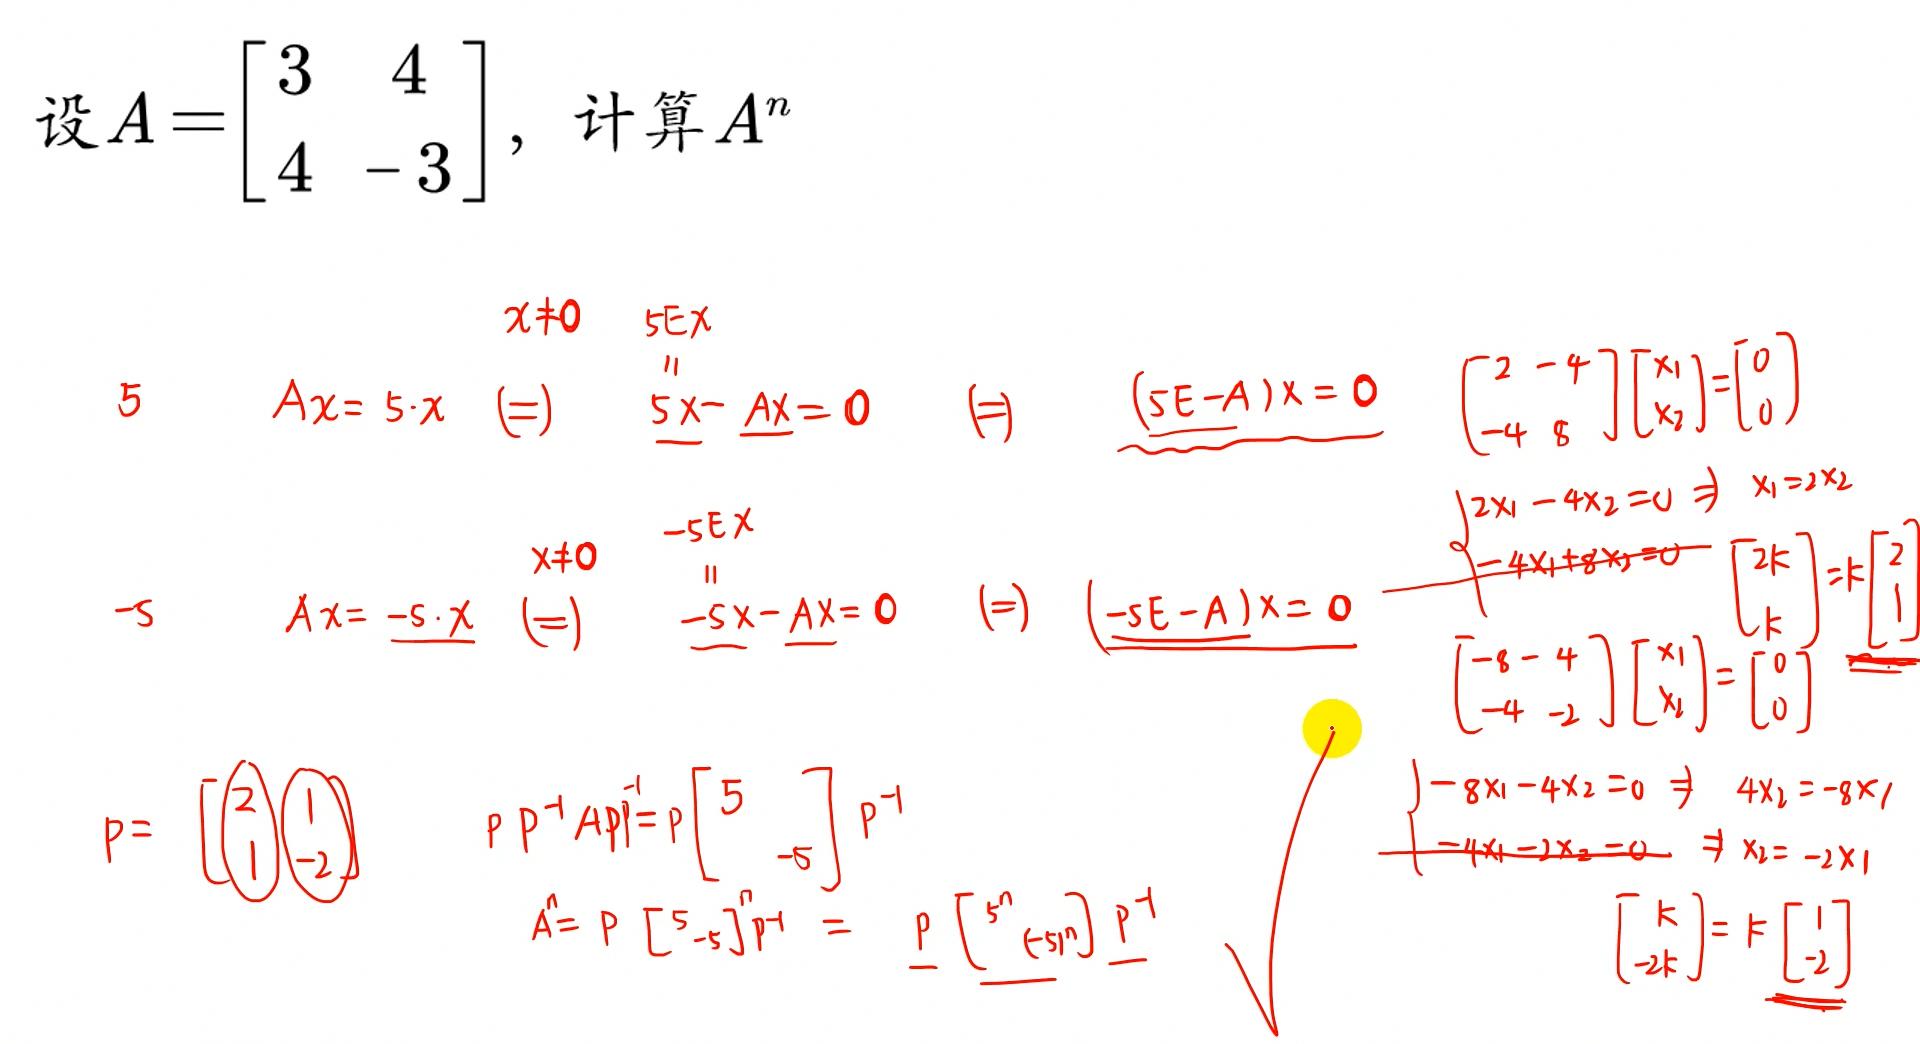 设 A = [3 4; 4 -3], 计算 Aⁿ
x≠0 5EX
॥
5 Ax = 5·x (=) 5x - Ax = 0 (=) (5E - A)x = 0
[2 -4; -4 8] [x₁; x₂] = [0; 0]
2x₁ - 4x₂ = 0 ⇒ x₁ = 2x₂
-4x₁ + 8x₂ = 0
[2k; k] = k [2; 1]
x≠0 -5EX
॥
-5 Ax = -5·x (=) -5x - Ax = 0 (=) (-5E - A)x = 0
[-8 -4; -4 -2] [x₁; x₂] = [0; 0]
-8x₁ - 4x₂ = 0 ⇒ 4x₂ = -8x₁
-4x₁ - 2x₂ = 0 ⇒ x₂ = -2x₁
[k; -2k] = k [1; -2]
P = [2 1; 1 -2] P P⁻¹ A P P⁻¹ = P [5 ; -5] P⁻¹
Aⁿ = P [5 -5]ⁿ P⁻¹ = P [5ⁿ (-5)ⁿ] P⁻¹